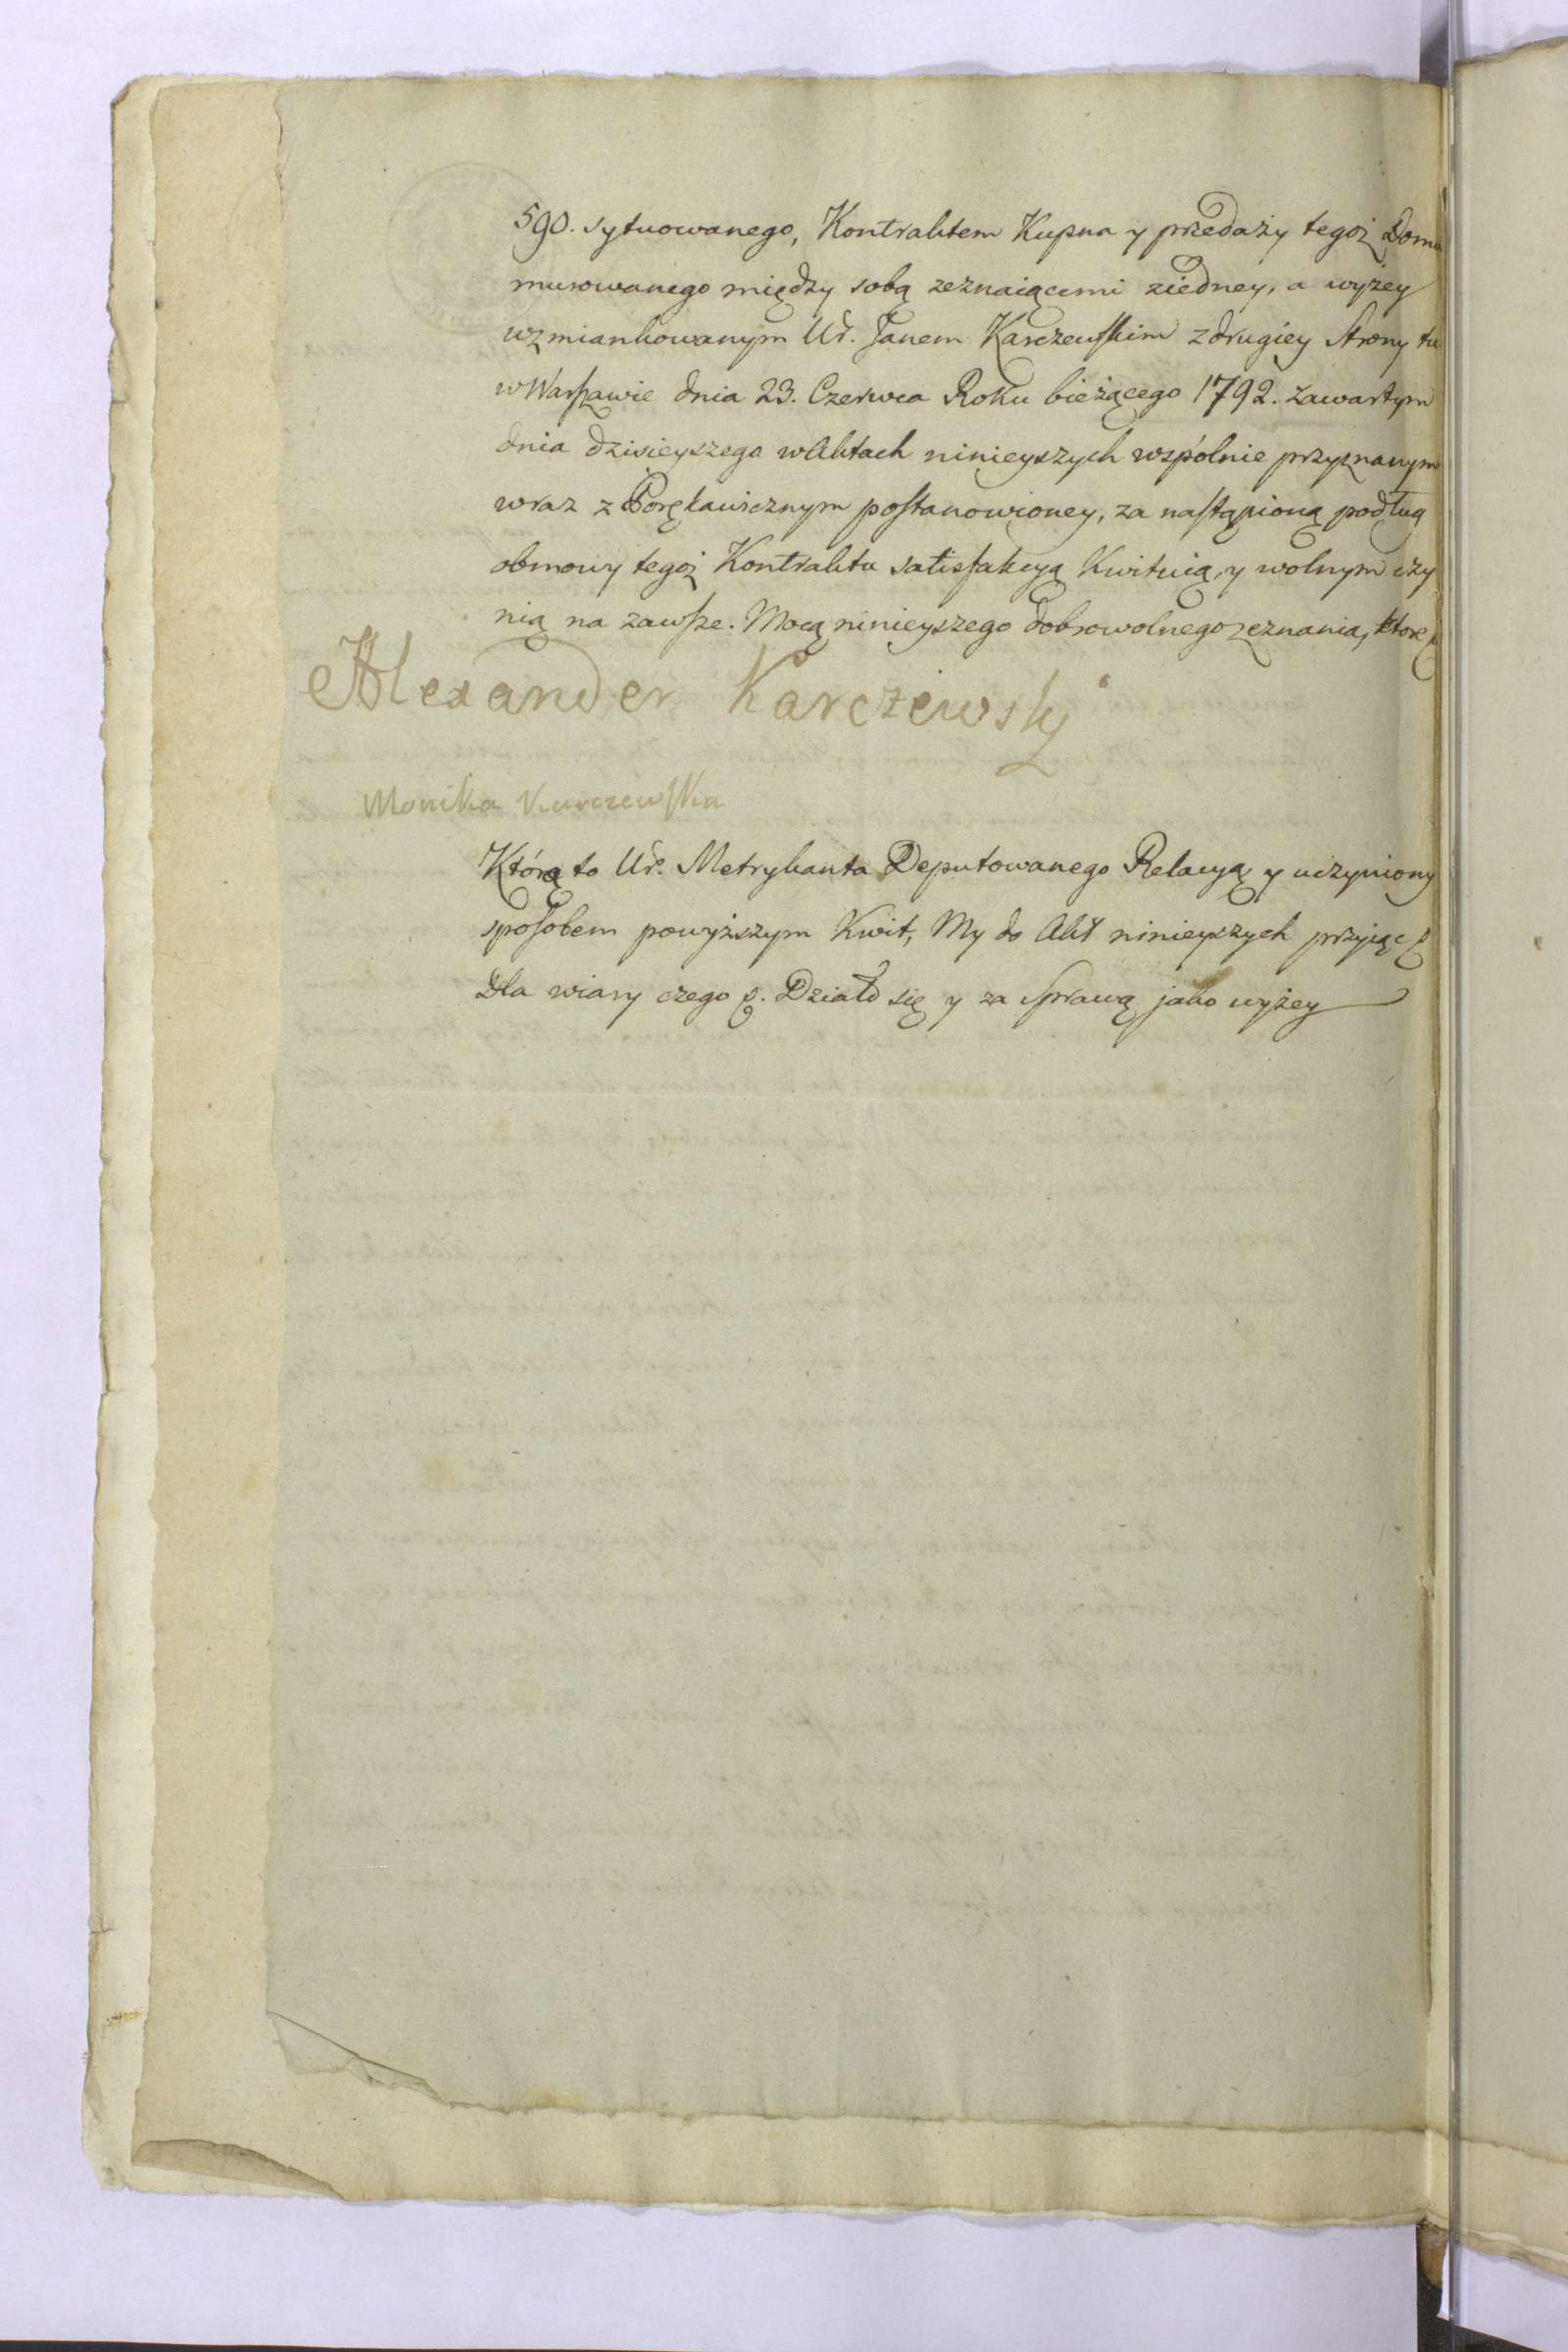 590. sytuowanego, Kontraktem Kupna y przedaży tegoż Domu
murowanego między sobą zeznaiącemi ziedney, a wyżey
wzmiankowanym Ur. Janem Karczewskim z drugiey Strony tu
w Warszawie dnia 23. Czerwca Roku bieżącego 1792. zawartym
dnia dzisieyszego w Aktach ninieyszych wspólnie przyznanym
wraz z Porękawicznym postanowioney, za nastąpioną podług
obmowy tegoż Kontraktu satisfakcyą Kwituią, y wolnym czy
nią na zawsze. Mocą ninieyszego dobrowolnego zeznania, ktore
Alexander Karczewsky
Monika Karczewska
Którą to Ur. Metrykanta Deputowanego Relacyą y uczyniony
sposobem powyższym Kwit, My do Akt ninieyszych przyiąć
Dla wiary czego p. Działo się y za Sprawą jako wyżey